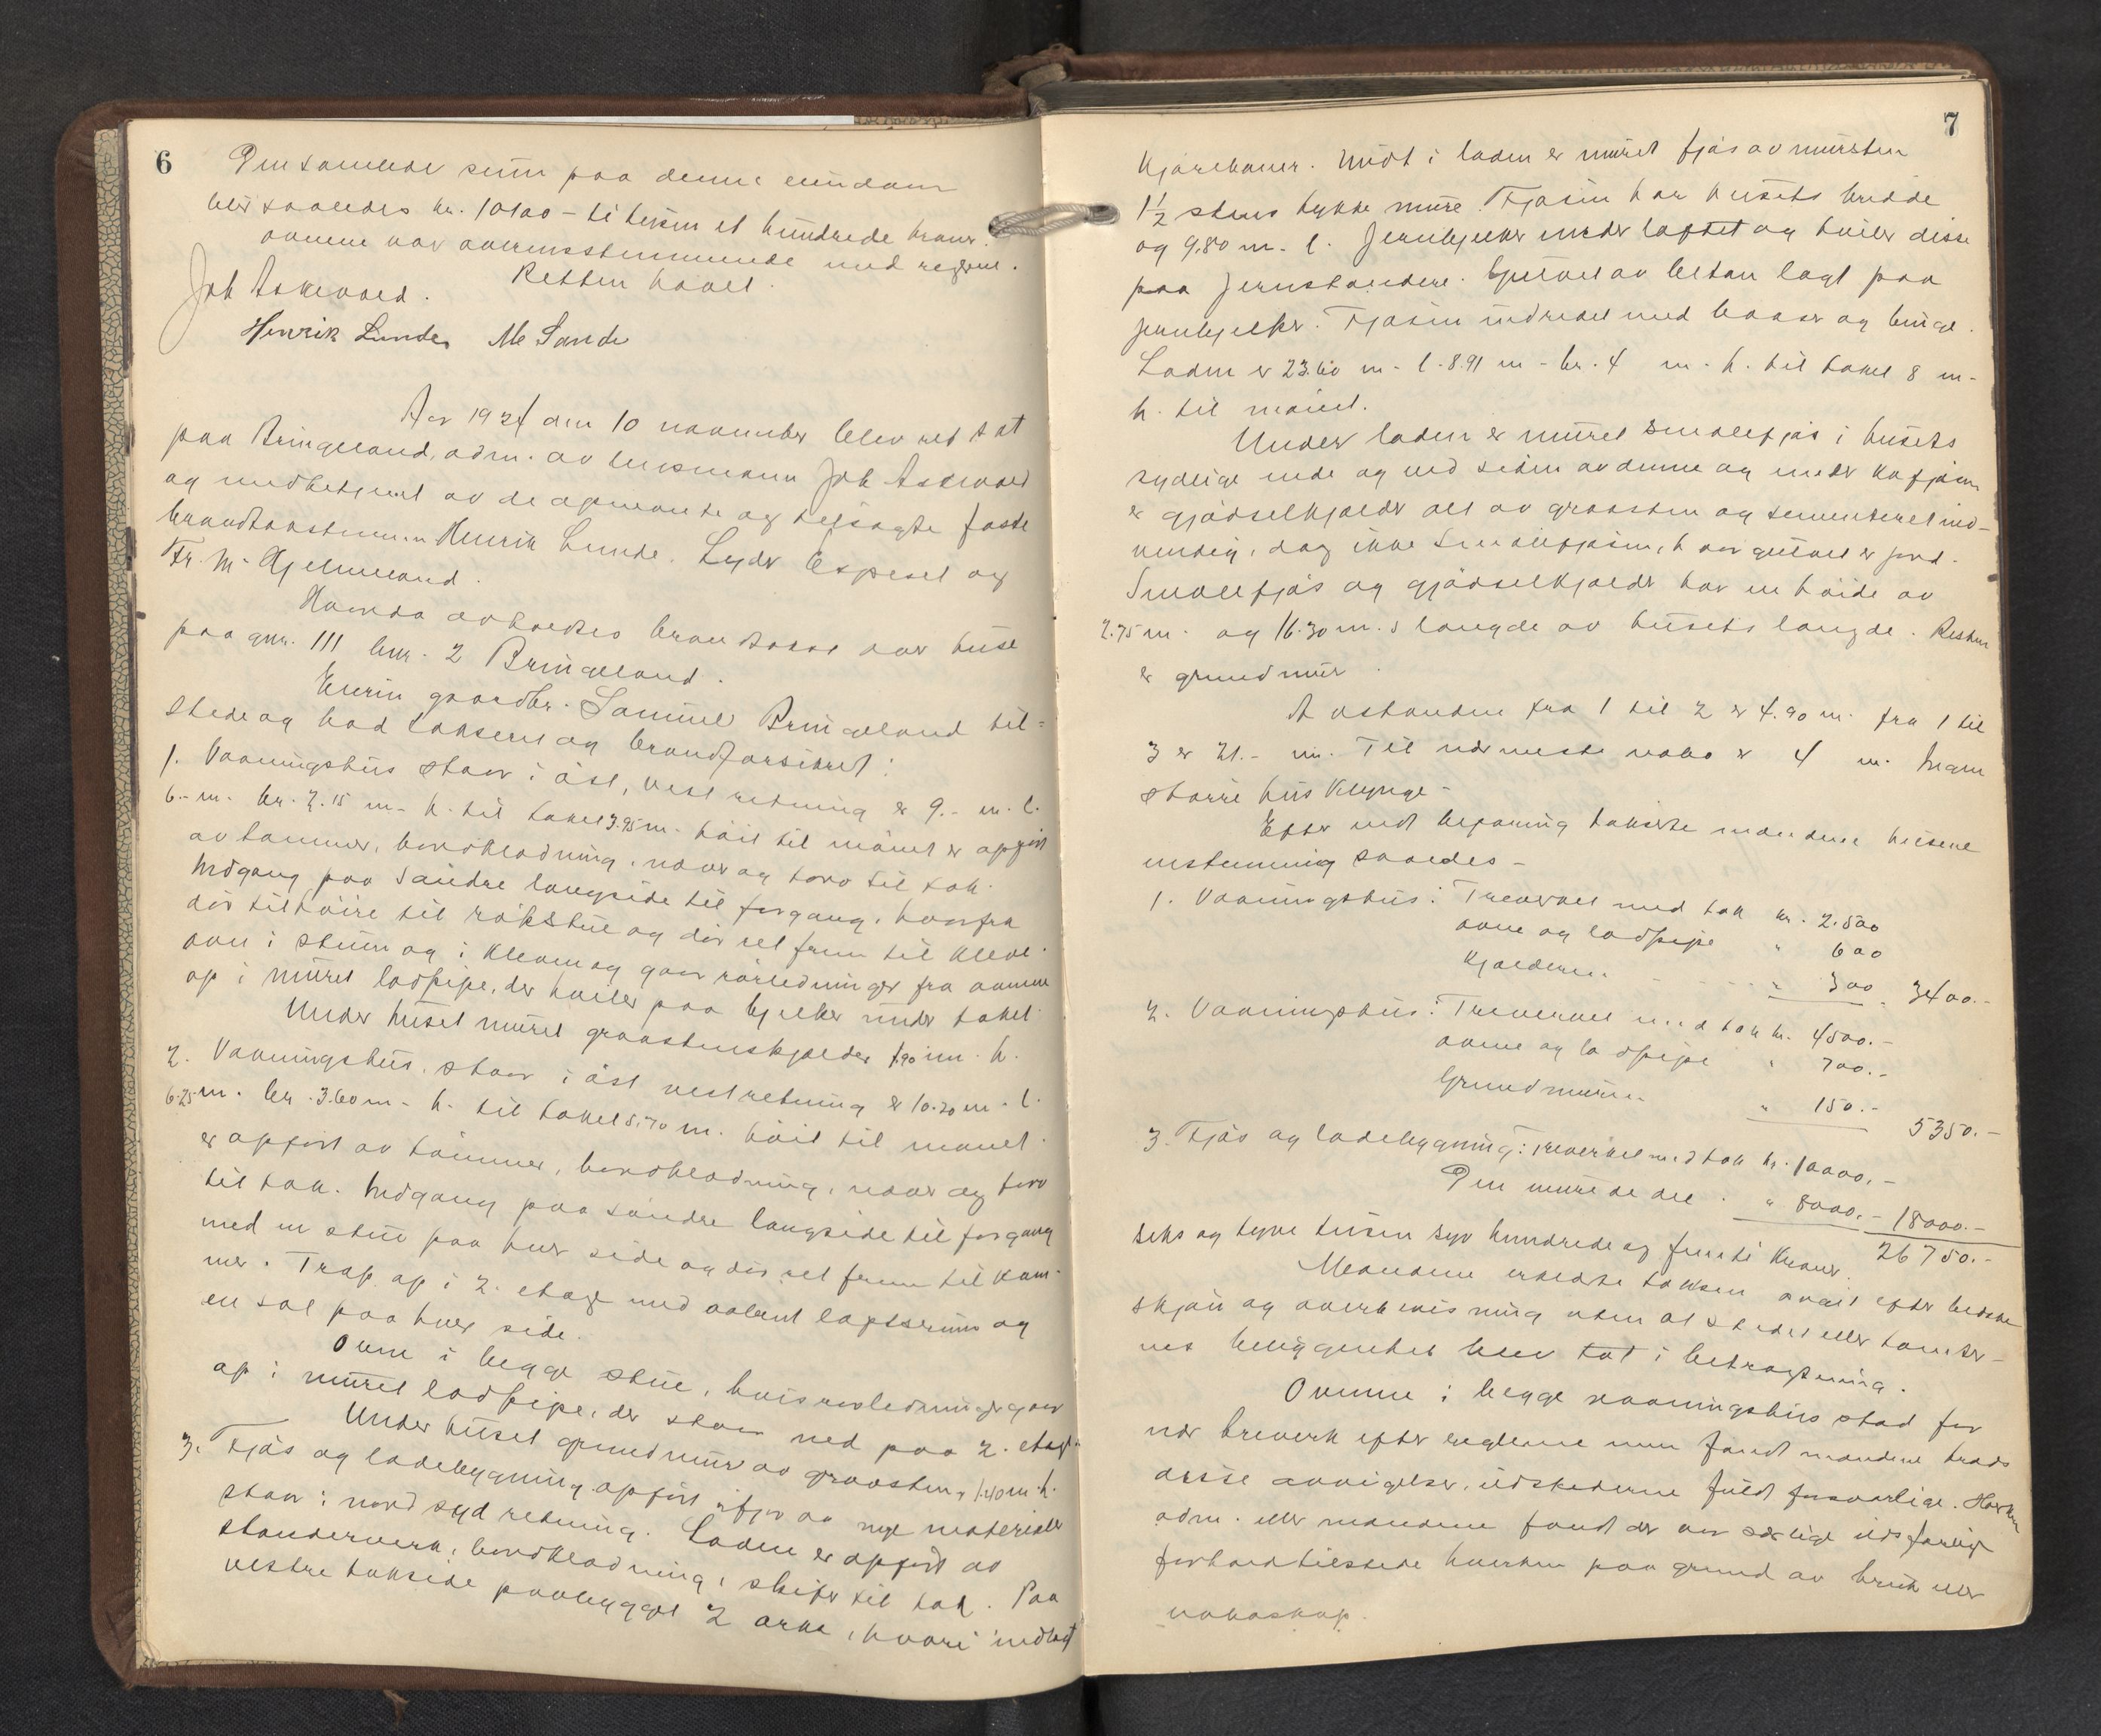 6
Den samlede sum paa denne eiendom
blir saaledes kr. 10100 - ti tusen et hundrede kroner.
ovnene var overensstemmende med reglerne.
Retten hævet.
Joh Askevold.
Henrik Lunde, M Sande
Aar 1924 den 10 november blev ret sat
paa Bringeland, adm. av lensmann Joh Askevold
og medbetjent av de opnevnte og tilsagte faste
brandtakstmenn Henrik Lunde. Lyder Espeset og
Fr. M. Hjelmeland.
Hvorda avholdtes brandtakst over huse
paa gnr. 111 bnr. 2 Bringeland.
Eieren gaardbr. Samuel Bringeland til=
stede og bad taksert og brandforsikret:
1. Vaaningshus staar i öst, vest retning er 9.- m. l.
6.- m. br. 2.15 m - h. til taket 3.95 m. höit til mönet er opfört
av tømmer, bordkledning, never og torv til tak.
Indgang paa söndre langside til forgang, hvorfra
dör til höire til rökstue og dör ret frem til kleve.
ovn i stuen og i kleven og gaar rörledninger fra ovnene
op i muret lodpipe, der hviler paa bjelker under taket.
Under huset muret graastenskjelder 1.90 m. h.
2. Vaaningshus, staar i öst vest retning er 10.20 m. l.
6.25 m. br. 3.60 m - h. til taket 5.70 m. höit til mönet.
er opfört av tömmer, bordkledning, never og torv
til tak. Indgang paa söndre langside til forgang
med en stue paa hver side og dör ret frem til kam-
mer. Trap op i 2. etage med aapent loftsrum og
en sal paa hver side.
Ovne i begge stue, hvis rörledninger gaar
op i muret lodpipe, der staar ned paa 2. etage.
Under huset grundmur av graasten, 1.40 m. h.
3. Fjös og ladebygning opfört ifjor av nye materialer
staar i nord syd retning. Laden er opfört av
standerverk, bordkledning, skifer til tak. Paa
vestre takside paabygget 2 arke, hvori indlagt
7
Kjørebaner. Midt i laden er muret fjös av mursten
1½ stens tykke mure. Fjösen har husets bredde
og 9.80 m. l. Jernbjelker under loftet og hviler disse
paa jernstøndere. Gulvet av betan lagt paa
jernbjelker. Fjösen indredet med baaser og binge.
Laden er 23.60 m - l - 8.91 m - br. 4 m. h. til taket 8 m-
h. til mönet.
Under laden er muret smalefjös i husets
sydlige ende og ved siden av denne og under kufjösen
er gjödselkjelder alt av graasten og sementeret ind-
vendig, dog ikke Smalefjösen, hvor gulvet er jord.
Smalefjös og gjödselkjelder har en höide av
2.75 m. og 16.30 m. s lengde av husets lengde. Resten
er grundmur.
Avstanden fra 1 til 2 er 4.90 m. fra 1 til
3 er 21.- m. Til nærmeste nabo er 4 m. Ingen
större hus klynge -
Efter endt befaring takserte mændene husene
enstemmig saaledes -
1. Vaaningshus: Treverket med tak kr. 2.500
ovne og lodpipe " 600
Kjelderen. " 300. 3400.-
2. Vaaningshus: Treverket med tak kr. 4500.-
ovne og lodpipe " 700.-
Grundmuren " 150.- 5350.-
3. Fjös og ladebygning: Treverket med tak kr. 10000.-
Den murede del. " 8000.- 18000.-
26750.-
seks og tyve tusen syv hundrede og femti Kroner.
Mændene erklærte taksten avgit efter bedste
skjön og overbevisning uten at stedet eller tomter-
nes beliggenhet blev tat i betragtning.
Ovnene i begge vaaningshus stod for
nær treverk efter reglerne men fandt mændene trods
disse avvigelser, ildstederne fuldt forsvarlige. Hverken
adm. eller mændene fandt der var særlige ildsfarlige
forhold tilstede hverken paa grund av bruk eller
naboskap.